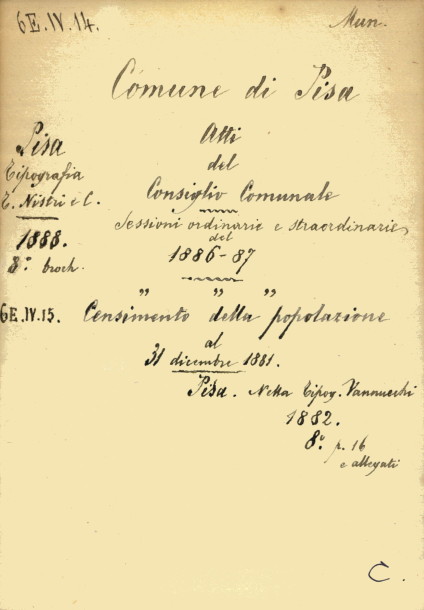 6E.IV.14.
Mun.
Comune di Pisa
Atti
del
Consiglio Comunale
Sessioni ordinarie e straordinarie
del
1886-87
Pisa
Tipografia
T. Nistri e C.
1888.
8.° broch.
" " "
6E.IV.15. Censimento della popolazione
al
31 dicembre 1881.
Pisa. Nella Tipog. Vannucchi
1882.
8.° p. 16
e allegati
C.